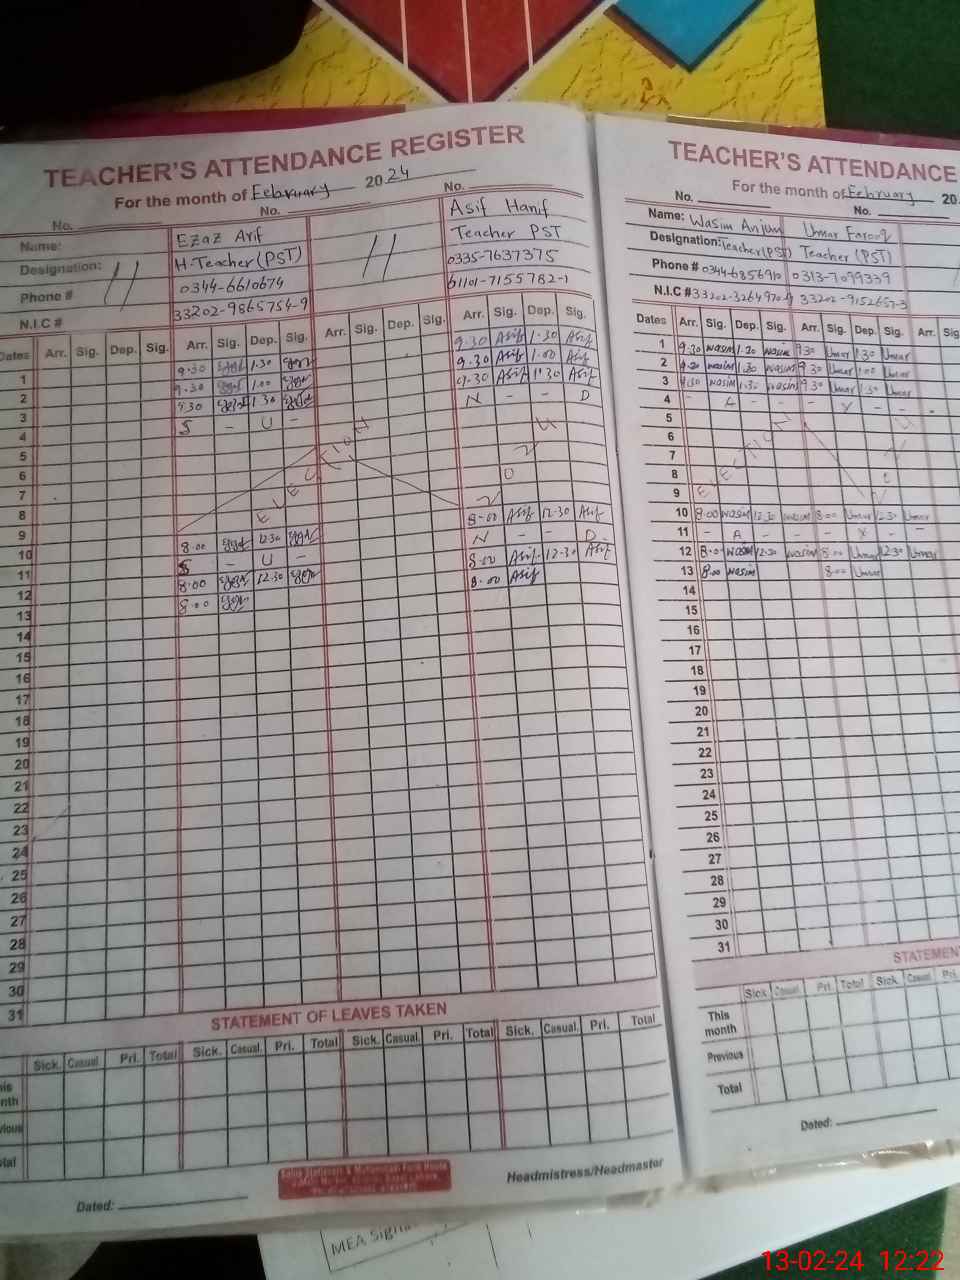 TEACHER'S ATTENDANCE REGISTER
For the month of February 2024
No. No. No.
Name: Ezaz Arif Asif Hanif
Designation: H-Teacher (PST) Teacher PST
Phone # 0344-6610674 0335-7637375
N.I.C # 33202-9865754-9 61101-7155782-1
Dates Arr. Sig. Dep. Sig. Arr. Sig. Dep. Sig. Arr. Sig. Dep. Sig. Arr. Sig. Dep. Sig.
1 9.30 1.30 9.30 Asif 1.30 Asif
2 9.30 1.00 9.30 Asif 1.00 Asif
3 9.30 1.30 9.30 Asif 1.30 Asif
4 S - U - N - - D
5
6
7
8
ELECTION
9
10 8.00 12.30 8.00 Asif 12.30 Asif
11 S - U - N - - D
12 8.00 12.30 8.00 Asif 12.30 Asif
13 8.00 8.00 Asif
14
15
16
17
18
19
20
21
22
23
24
25
26
27
28
29
30
31
STATEMENT OF LEAVES TAKEN
Sick. Casual. Pri. Total Sick. Casual. Pri. Total Sick. Casual. Pri. Total Sick. Casual. Pri. Total
Dated:
Headmistress/Headmaster
TEACHER'S ATTENDANCE
For the month of February 20
No. No.
Name: Wasim Anjum Umar Farooq
Designation: Teacher (PST) Teacher (PST)
Phone # 0344-6856910 0313-7099339
N.I.C # 33202-9152657-3
Dates Arr. Sig. Dep. Sig. Arr. Sig. Dep. Sig. Arr. Sig.
1 9.30 wasim 1.30 wasim 9.30 Umar 1.30 Umar
2 9.30 wasim 1.30 wasim 9.30 Umar 1.00 Umar
3 9.30 wasim 1.30 wasim 9.30 Umar 1.30 Umar
4 - A - - - Y - -
5
6
7
8
9
ELECTION
10 8.00 wasim 12.30 wasim 8.00 Umar 12.30 Umar
11 - A - - - Y - -
12 8.00 wasim 12.30 wasim 8.00 Umar 12.30 Umar
13 8.00 wasim 8.00 Umar
14
15
16
17
18
19
20
21
22
23
24
25
26
27
28
29
30
31
STATEMENT
Sick. Casual. Pri. Total Sick. Casual. Pri.
This month
Previous
Total
Dated:
MEA Sign
13-02-24 12:22